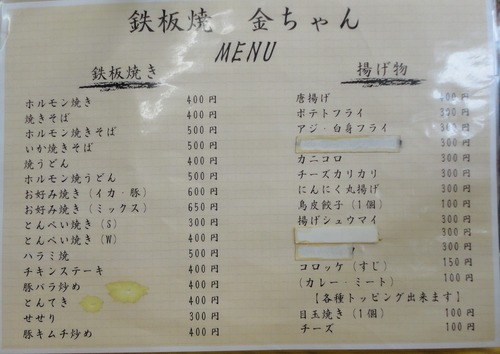 鉄板焼 金ちゃん
MENU
鉄板焼き
ホルモン焼き 400円
焼きそば 400円
ホルモン焼きそば 500円
いか焼きそば 500円
焼うどん 400円
ホルモン焼うどん 500円
お好み焼き(イカ・豚) 600円
お好み焼き(ミックス) 650円
とんぺい焼き(S) 300円
とんぺい焼き(W) 400円
ハラミ焼 500円
チキンステーキ 400円
豚バラ炒め 400円
とんてき 500円
せせり 300円
豚キムチ炒め 400円
揚げ物
唐揚げ 400円
ポテトフライ 300円
アジ・白身フライ 300円
300円
カニコロ 300円
チーズカリカリ 300円
にんにく丸揚げ 300円
鳥皮餃子(1個) 100円
揚げシュウマイ 300円
300円
300円
コロッケ(すじ) 150円
(カレー・ミート) 100円
【各種トッピング出来ます】
目玉焼き(1個) 100円
チーズ 100円